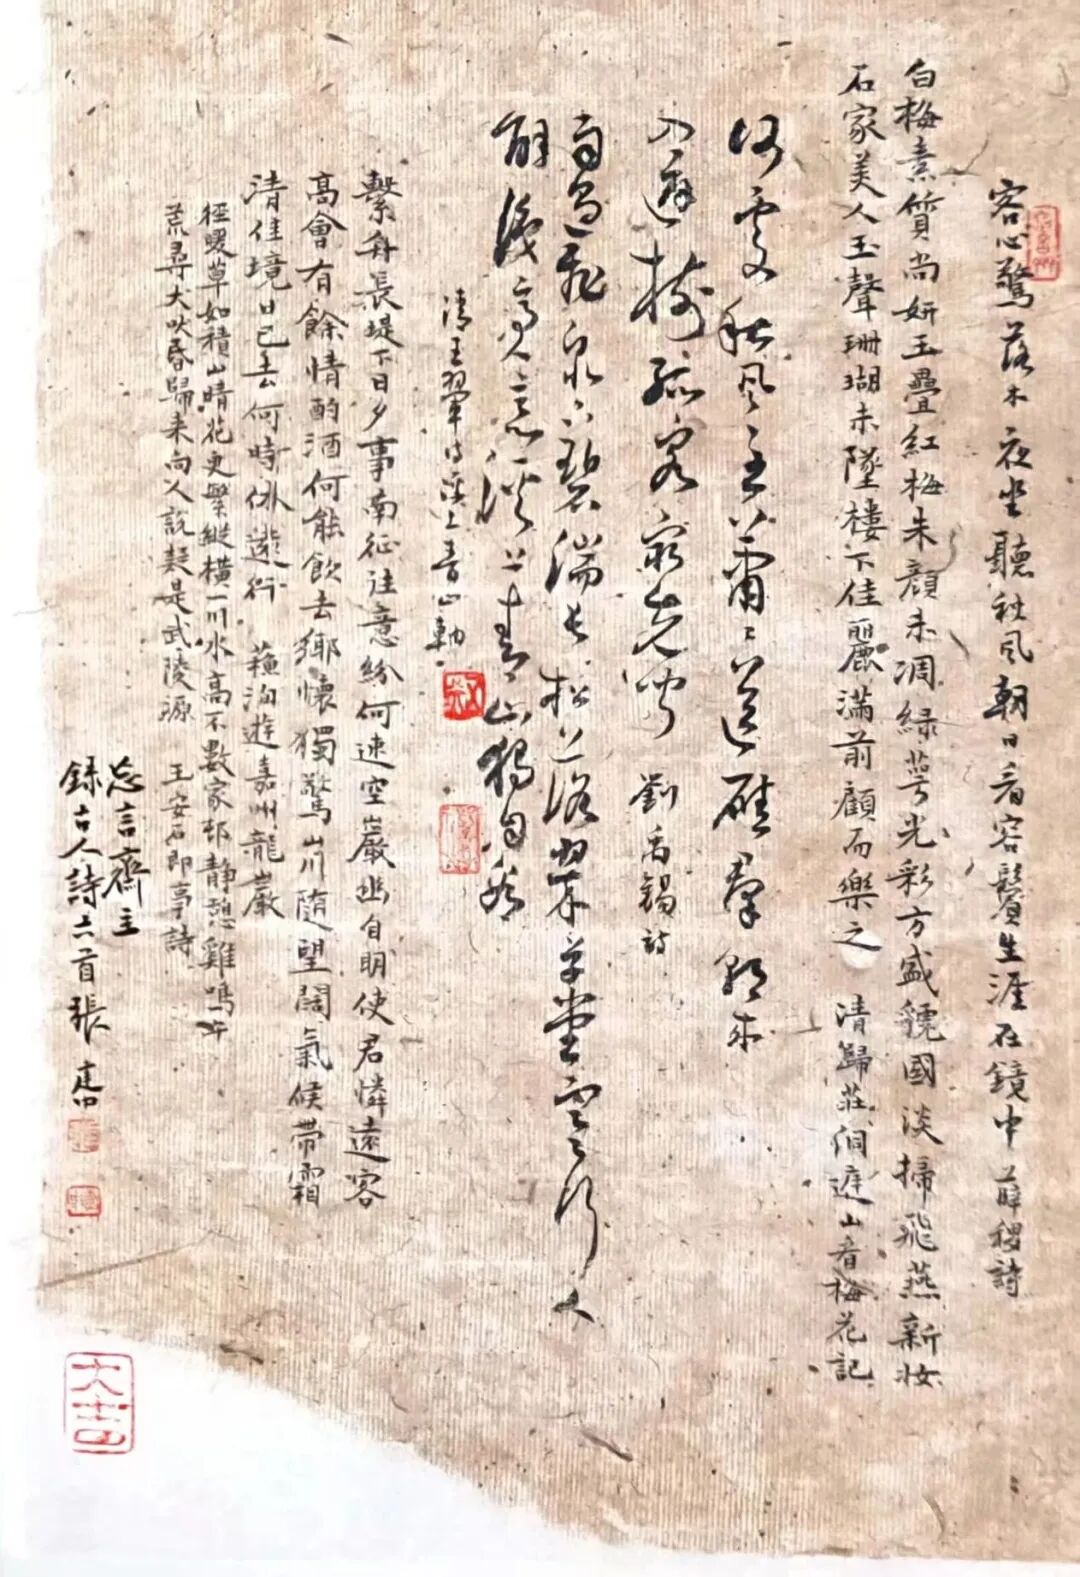 客心驚落木夜坐聽秋風朝日看容鬢生涯在鏡中 薛稷詩
白梅素質尚妍玉疊紅梅朱顏未凋綠萼光彩方盛虢國淡掃飛燕新妝
石家美人玉聲珊瑚未墜樓下佳麗滿前顧而樂之 清歸莊洞庭山看梅花記
何處秋風至蕭〻送雁群朝來
入庭樹孤客最先聞 劉禹錫詩
雨過飛泉下碧湍長松落翠草堂寒幽人
解識高人意溪上青山獨自看
清王翬詩溪上青山軸
繫舟長堤下日夕事南征往意紛何速空巖幽自明使君憐遠客
高會有餘情酌酒何能飲去鄉懷獨驚山川隨望闊氣候帶霜
清佳境日已去何時休遊行 蘇洵遊嘉州龍巖
徑暖草如積山晴花更繁縱橫一川水高下數家邨靜憩雞鳴午
荒尋犬吠昏歸來向人說疑是武陵源 王安石即事詩
忘言齋主
錄古人詩六首張